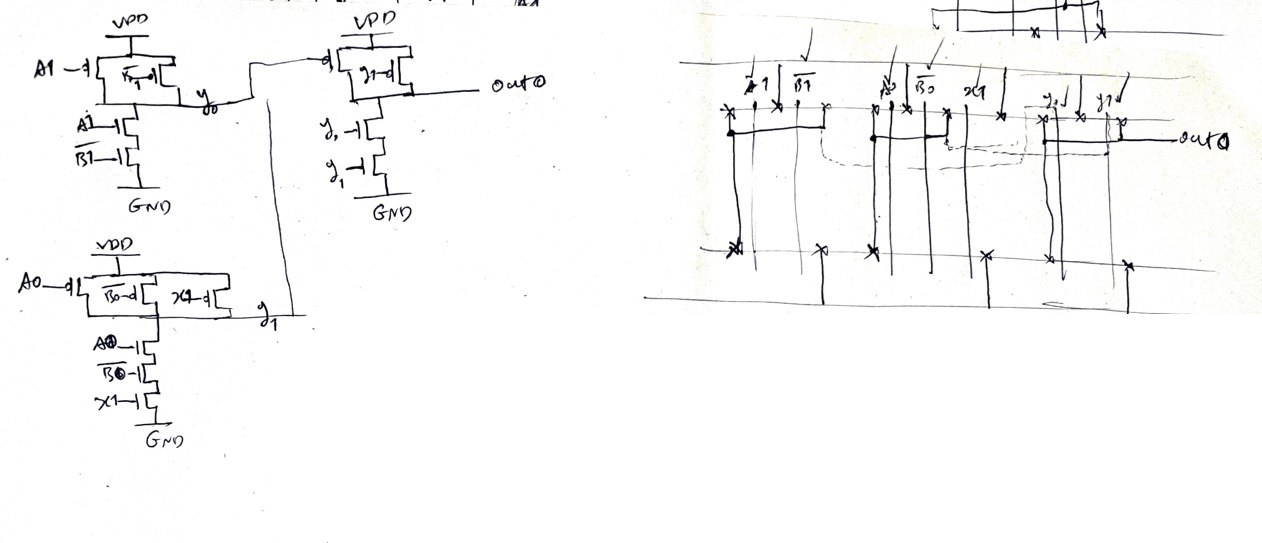 VDD
A1
B̅1
y0
A1
B̅1
GND
VDD
y1
out0
y0
y1
GND
VDD
A0
B̅0
x1
y1
A0
B̅0
x1
GND
A1 B̅1 A0 B̅0 x1 y0 y1
out0